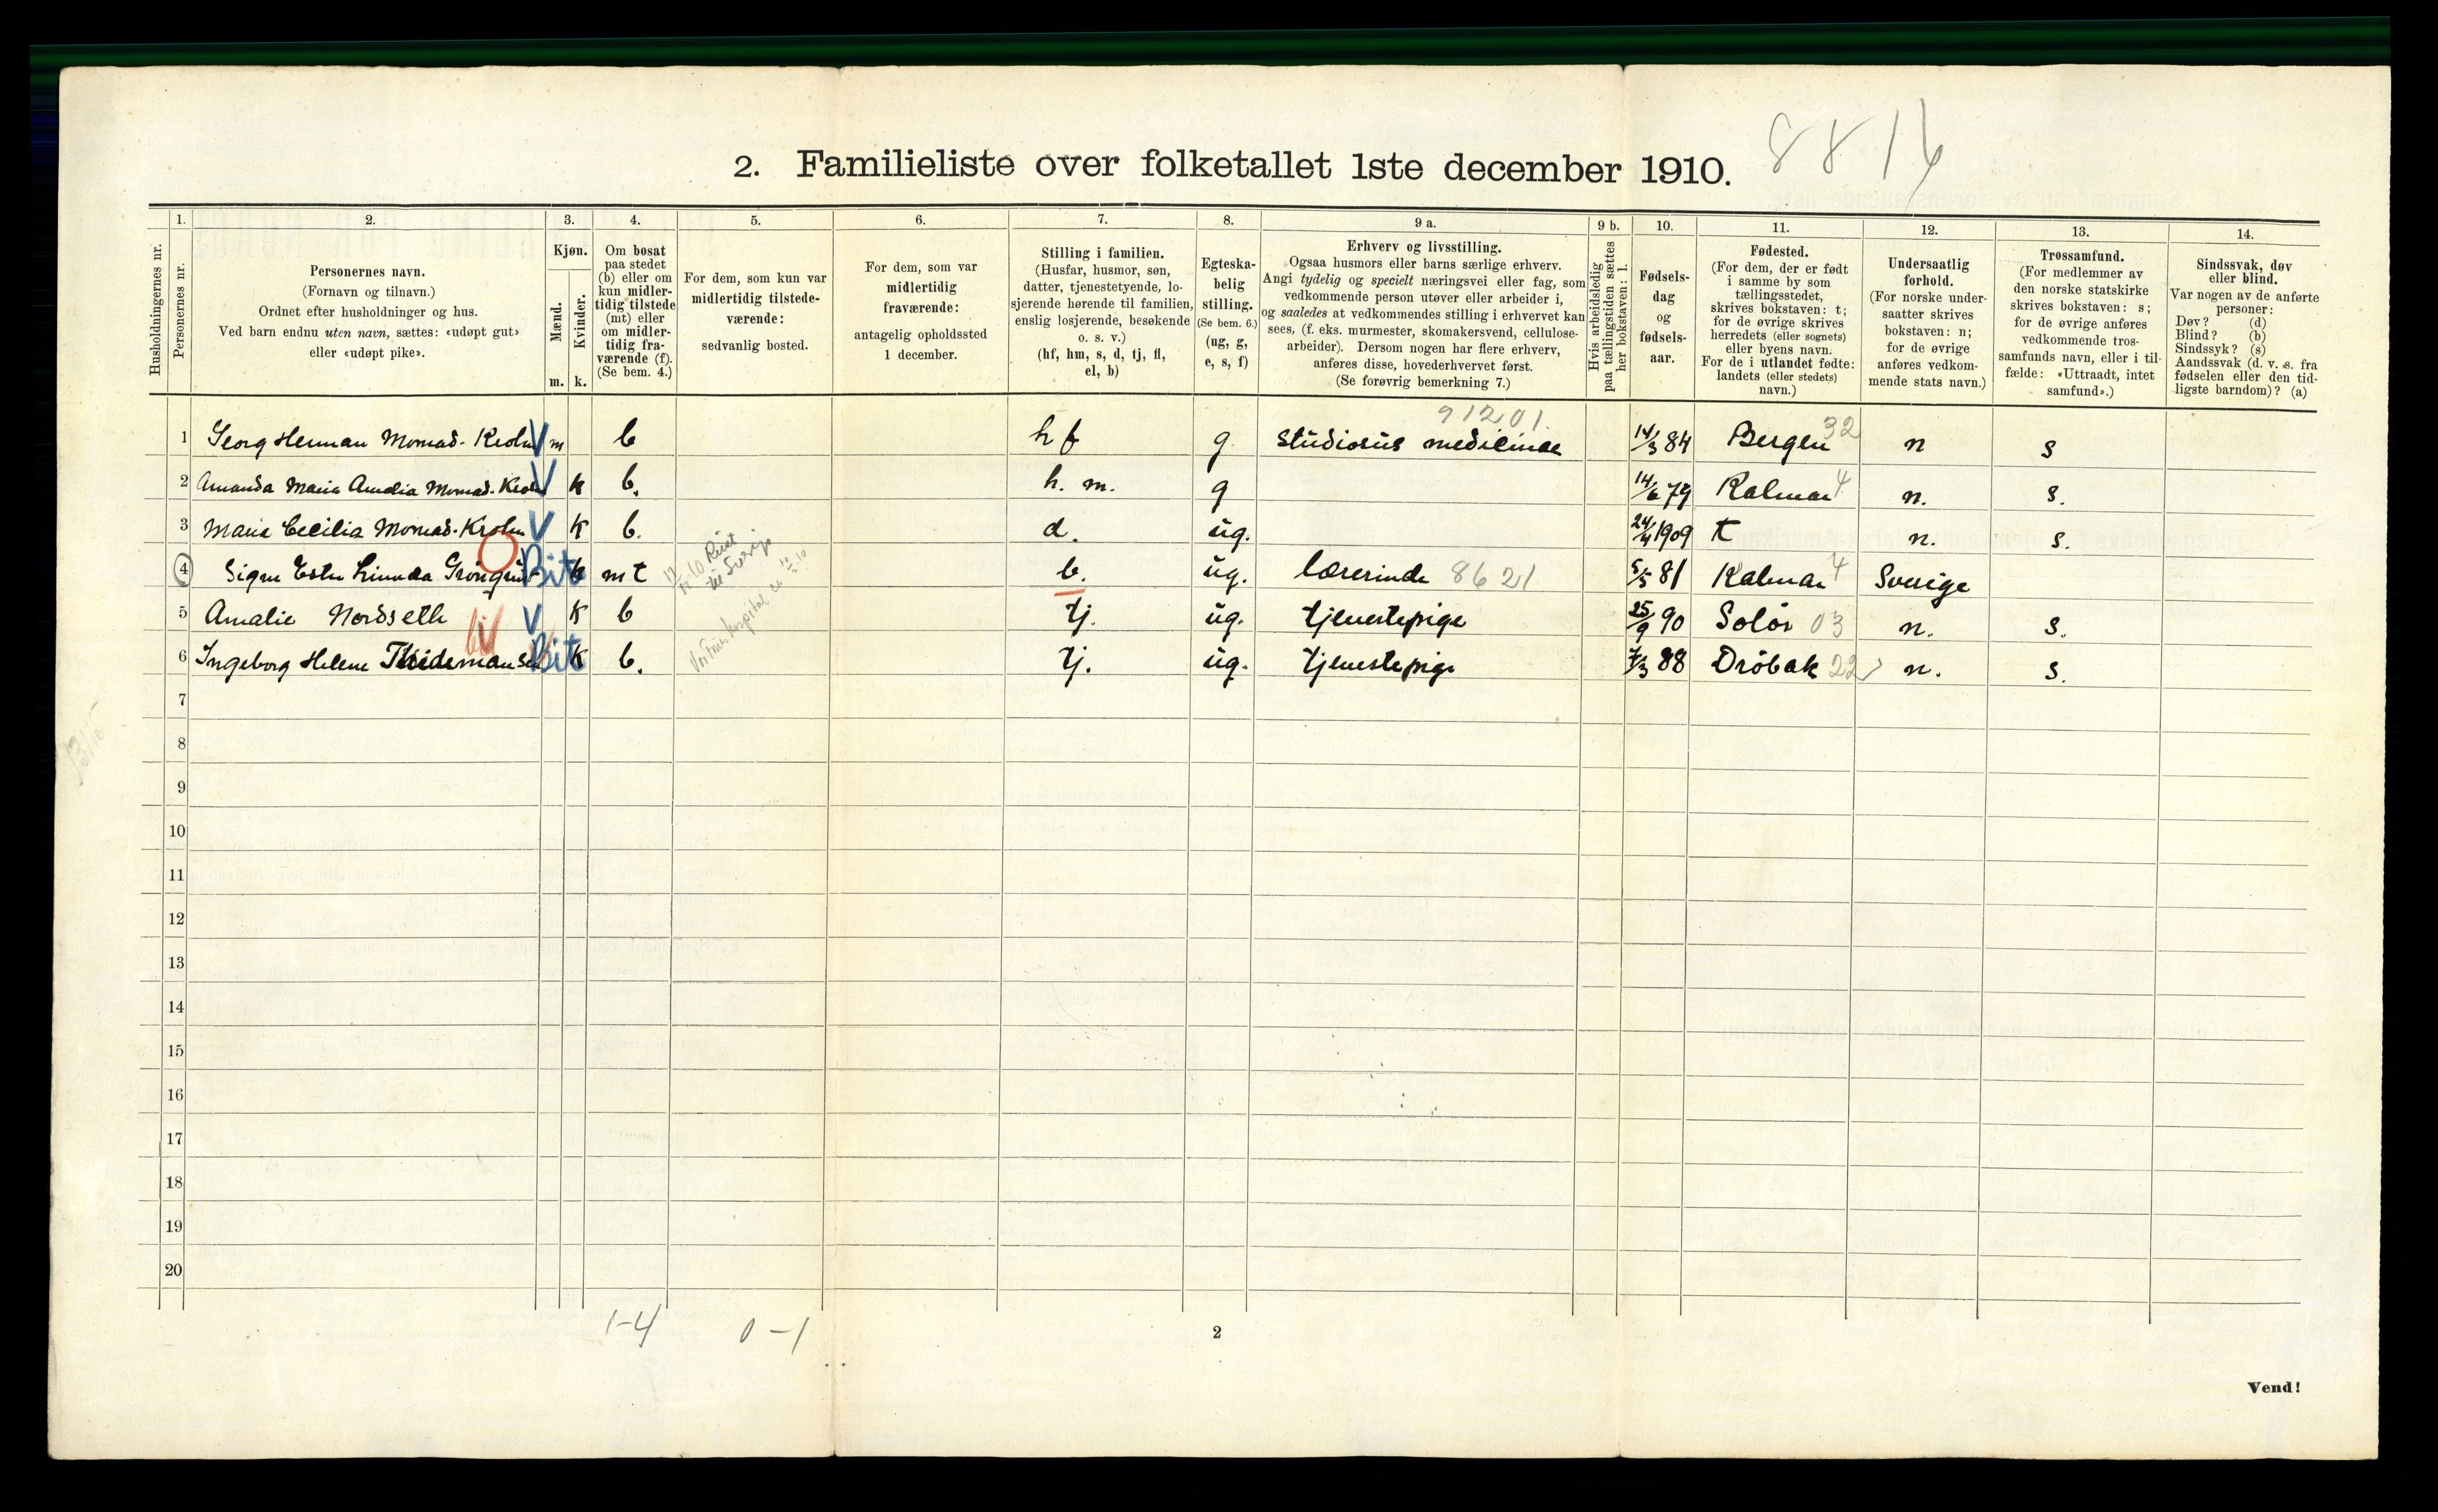 8816
2. Familieliste over folketallet 1ste december 1910.
Husholdningernes nr.
1.
Personernes nr.
2.
Personernes navn.
(Fornavn og tilnavn.)
Ordnet efter husholdninger og hus.
Ved barn endnu uten navn, sættes: «udøpt gut»
eller «udøpt pike».
3.
Kjøn.
Mænd.
Kvinder.
m. k.
4.
Om bosat
paa stedet
(b) eller om
kun midler-
tidig tilstede
(mt) eller
om midler-
tidig fra-
værende (f).
(Se bem. 4.)
5.
For dem, som kun var
midlertidig tilstede-
værende:
sedvanlig bosted.
6.
For dem, som var
midlertidig
fraværende:
antagelig opholdssted
1 december.
7.
Stilling i familien.
(Husfar, husmor, søn,
datter, tjenestetyende, lo-
sjerende hørende til familien,
enslig losjerende, besøkende
o. s. v.)
(hf, hm, s, d, tj, fl,
el, b)
8.
Egteska-
belig
stilling.
(Se bem. 6.)
(ug, g,
e, s, f)
9 a.
Erhverv og livsstilling.
Ogsaa husmors eller barns særlige erhverv.
Angi tydelig og specielt næringsvei eller fag, som
vedkommende person utøver eller arbeider i,
og saaledes at vedkommendes stilling i erhvervet kan
sees, (f. eks. murmester, skomakersvend, cellulose-
arbeider). Dersom nogen har flere erhverv,
anføres disse, hovederhvervet først.
(Se forøvrig bemerkning 7.)
9 b.
Hvis arbeidsledig
paa tællingstiden sættes
her bokstaven: l.
10.
Fødsels-
dag
og
fødsels-
aar.
11.
Fødested.
(For dem, der er født
i samme by som
tællingsstedet,
skrives bokstaven: t;
for de øvrige skrives
herredets (eller sognets)
eller byens navn.
For de i utlandet fødte:
landets (eller stedets)
navn.)
12.
Undersaatlig
forhold.
(For norske under-
saatter skrives
bokstaven: n;
for de øvrige
anføres vedkom-
mende stats navn.)
13.
Trossamfund.
(For medlemmer av
den norske statskirke
skrives bokstaven: s;
for de øvrige anføres
vedkommende tros-
samfunds navn, eller i til-
fælde: «Uttraadt, intet
samfund».)
14.
Sindssvak, døv
eller blind.
Var nogen av de anførte
personer:
Døv? (d)
Blind? (b)
Sindssyk? (s)
Aandssvak (d. v. s. fra
fødselen eller den tid-
ligste barndom)? (a)
91201.
1 Georg Herman Monrad-Krohn V m b hf g. studiosus medicinae 14/3 84 Bergen 32 n s
2 Amanda Maria Amalia Monrad-Krohn V k b. h. m. g 14/6 79 Kalmar 4 n. s.
3 Maria Cecilia Monrad-Krohn V k b. d. ug. 24/4 1909 t n. s.
4 Signe Ester Linnea Bit k mt b. ug. lærerinde 8621 5/5 81 Kalmar 4 Sverige
Reist
til Sverige
5 Amalie Nordseth V k b tj. ug. tjenestepige 25/9 90 Solør 03 n. s.
6 Ingeborg Helene Thidemansen Bit k b. tj. ug. tjenestepige 7/3 88 Drøbak 22 n. s.
7
8
9
10
11
12
13
14
15
16
17
18
19
20
1-4 0-1
2
Vend!